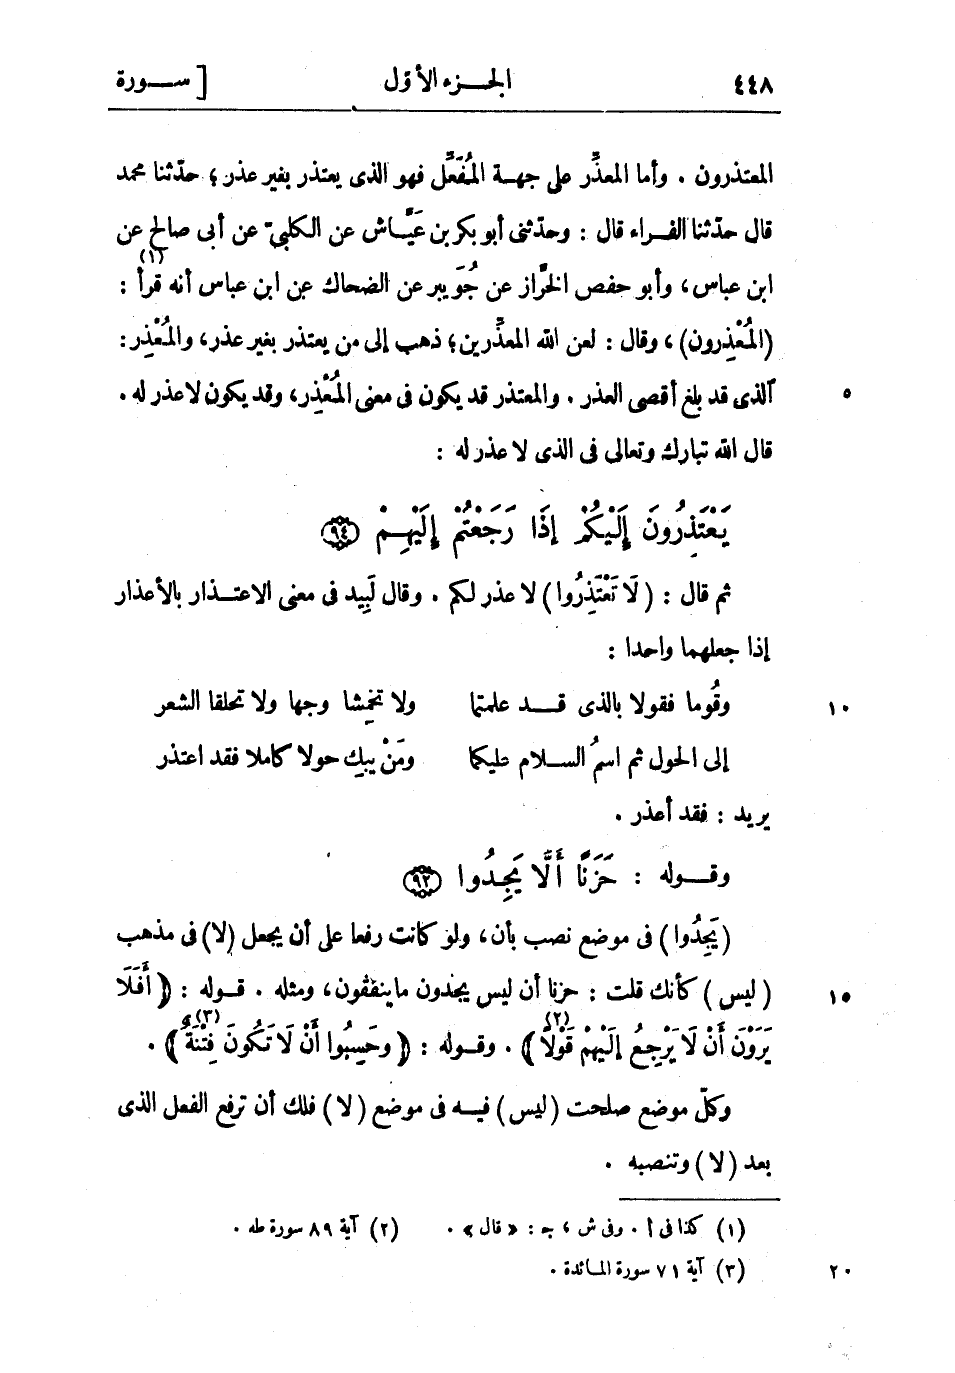 ٤٤٨ الجـــزء الأوّل [ ســـورة
المعتذرون . وأما المعذّر على جهـة المُفَعِّل فهو الذى يعتذر بغير عذر ؛ حدّثنا محمد
قال حدّثنا الفـراء قال : وحدّثنى أبو بكر بن عَيَّاش عن الكلبىّ عن أبى صالح عن
ابن عباس، وأبو حفص الخرَّاز عن جُوَيبر عن الضحاك عن ابن عباس أنه قرأ (١) :
(المُعْذِرون) ، وقال : لعن الله المعذِّرين؛ ذهب إلى من يعتذر بغير عذر، والمُعْذِر:
٥ الذى قد بلغ أقصى العذر . والمعتذر قد يكون فى معنى المُعْذِر، وقد يكون لا عذر له .
قال الله تبارك وتعالى فى الذى لا عذر له :
يَعْتَذِرُونَ إِلَيْكُمْ إِذَا رَجَعْتُمْ إِلَيْهِمْ ٩٤
ثم قال : (لَا تَعْتَذِرُوا) لا عذر لكم . وقال لَبِيد فى معنى الاعتـذار بالأعذار
إذا جعلهما واحدا :
١٠ وقُوما فقولا بالذى قـد علمتما ولا تخمِشا وجها ولا تحلقا الشعر
إلى الحول ثم اسمُ السـلام عليكما ومَنْ يبكِ حولا كاملا فقد اعتذر
يريد : فقد أعذر .
وقـوله : حَزَنًا أَلَّا يَجِدُوا ٩٢
(يَجِدُوا) فى موضع نصب بأن، ولو كانت رفعا على أن يجعل (لا) فى مذهب
١٥ (ليس) كأنك قلت : حزنا أن ليس يجدون ما ينفقون، ومثله . قـوله : ﴿أَفَلَا
يَرَوْنَ أَنْ لَا يَرْجِعُ إِلَيْهِمْ قَوْلًا (٢)﴾ . وقـوله : ﴿وَحَسِبُوا أَنْ لَا تَكُونَ فِتْنَةٌ (٣)﴾ .
وكلّ موضع صلحت (ليس) فيـه فى موضع (لا) فلك أن ترفع الفعل الذى
بعد (لا) وتنصبه .
(١) كذا فى أ . وفى ش ، جـ : « قال » . (٢) آية ٨٩ سورة طه .
٢٠ (٣) آية ٧١ سورة المـائدة .